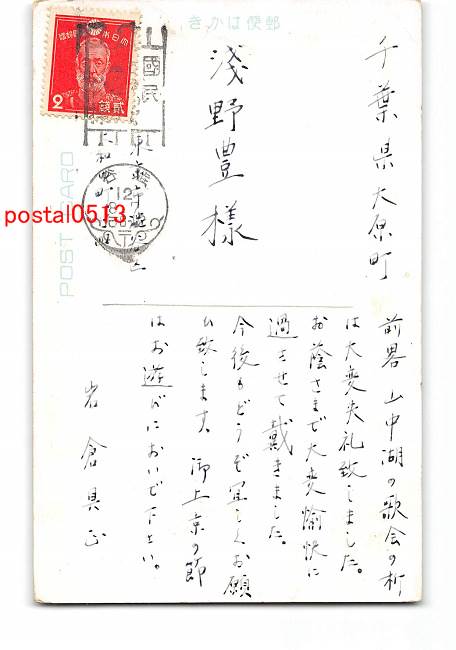 郵便はかき
POST CARD
大日本帝國郵便
2
貳錢
國民
12
postal0513
千葉県大原町
浅野豊様
前畧 山中湖の歌会の折
は大変失礼致しました。
お蔭さまで大変愉快に
過させて戴きました。
今後もどうぞ宜しくお願
ひ致します。御上京の節
はお遊びにおいで下さい。
岩倉具正